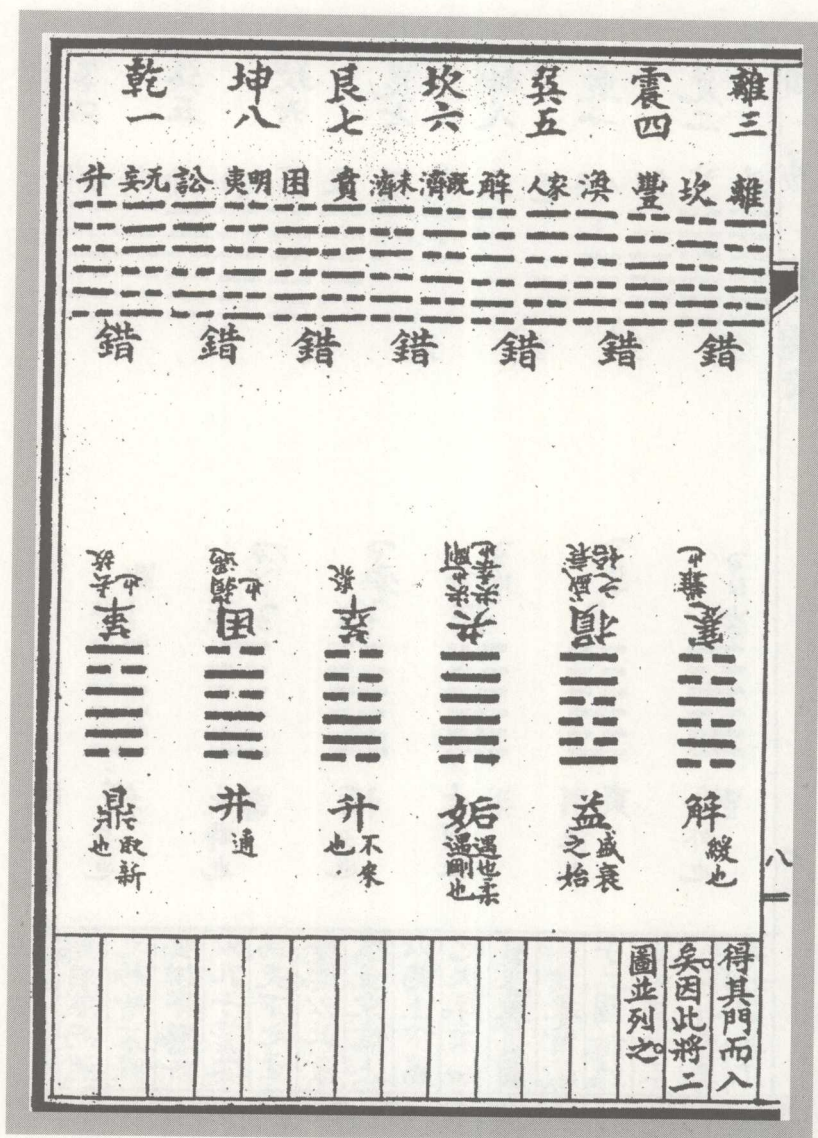 離三
震四
巽五
坎六
艮七
坤八
乾一
離
坎
豐
渙
家人
解
既濟
未濟
賁
困
明夷
訟
无妄
升
錯
錯
錯
錯
錯
錯
錯
蹇
難也
損
盛衰
之始
夬
決也剛
決柔也
萃
聚
困
相遇
也
革
去故
也
解
緩也
益
盛衰
之始
姤
遇也柔
遇剛也
升
不來
也
井
通
鼎
取新
也
八
得其門而入
矣。因此將二
圖並列之。